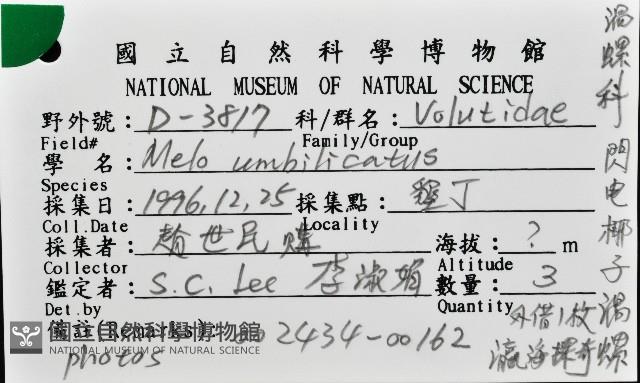 國立自然科學博物館
NATIONAL MUSEUM OF NATURAL SCIENCE
野外號：D-3817 科/群名：Volutidae
Field# Family/Group
學 名：Melo umbilicatus
Species
採集日：1996,12,25 採集點：墾丁
Coll.Date Locality
採集者：趙世民 購 海拔：? m
Collector Altitude
鑑定者：S.C. Lee 李淑娟 數量：3
Det.by Quantity
(Remarks): 2434-00162
國立自然科學博物館
NATIONAL MUSEUM OF NATURAL SCIENCE
photos
外借1枚
瀛海探奇
渦螺科 閃电椰子渦螺